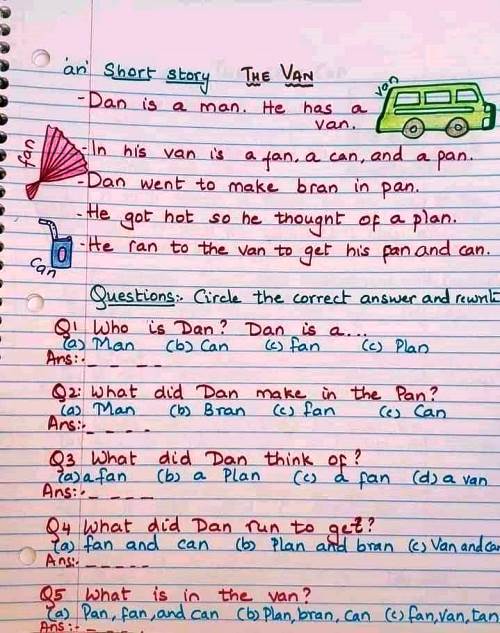 'an' Short story The Van
van
-Dan is a man. He has a
van.
fan
-In his van is a fan, a can, and a pan.
-Dan went to make bran in pan.
-He got hot so he thougnt of a plan.
-He ran to the van to get his fan and can.
can
Questions:- Circle the correct answer and rewrite
Q1 Who is Dan? Dan is a...
(a) Man (b) Can (c) fan (c) Plan
Ans:- _ _ _ _
Q2: What did Dan make in the Pan?
(a) Man (b) Bran (c) fan (c) Can
Ans:- _ _ _ _
Q3 What did Dan think of?
(a) a fan (b) a Plan (c) a fan (d) a van
Ans:- _ _ _ _
Q4 What did Dan run to get?
(a) fan and can (b) Plan and bran (c) Van and can
Ans:- _ _ _ _
Q5 What is in the van?
(a) Pan, fan, and can (b) Plan, bran, can (c) fan, van, tan
Ans:- _ _ _ _